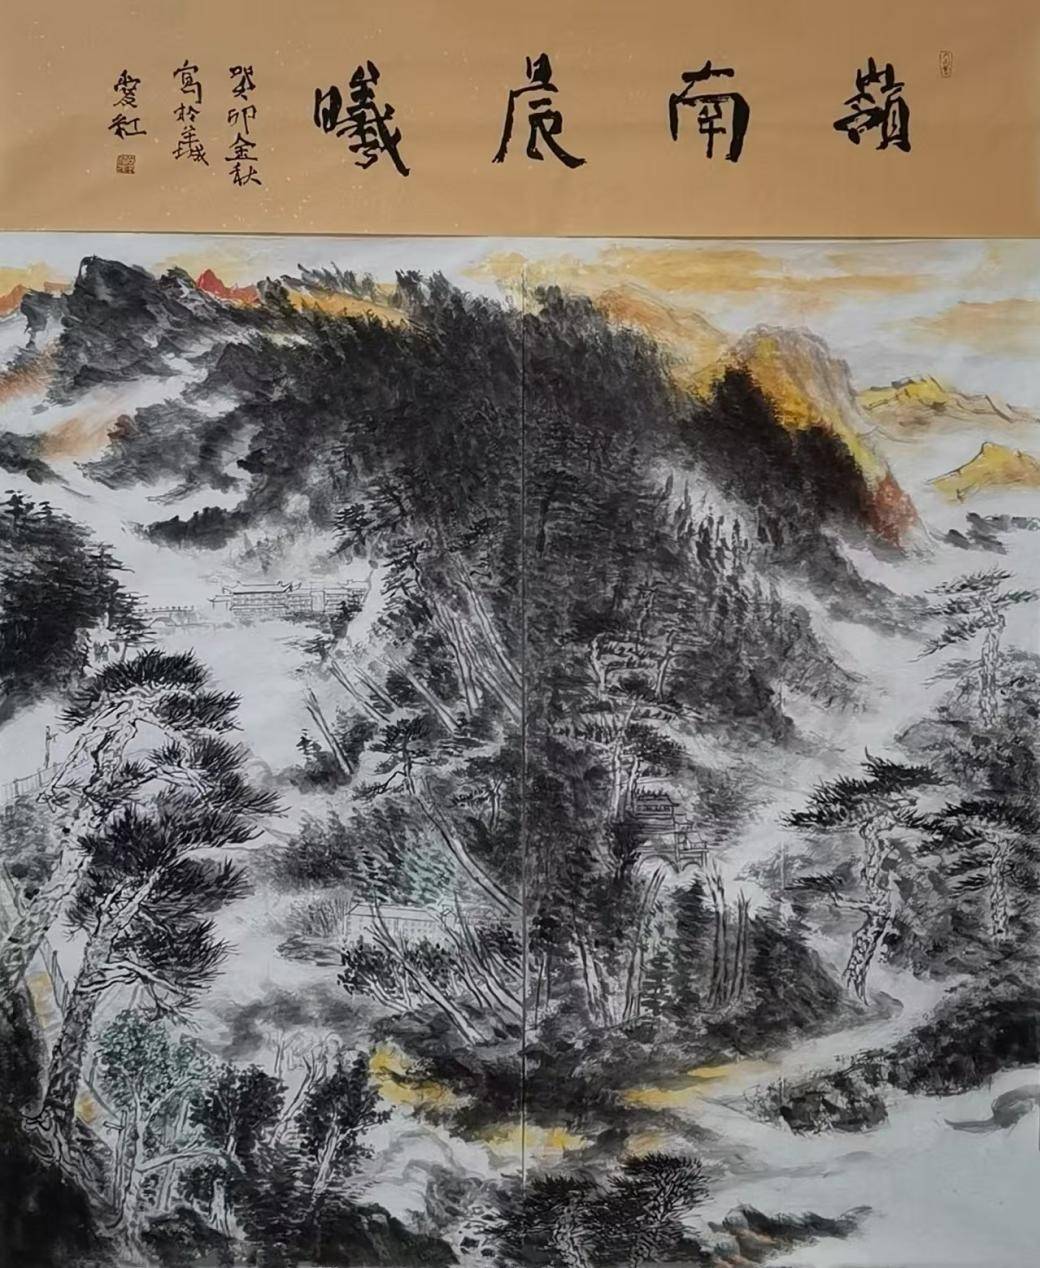 嶺南晨曦
癸卯金秋
寫於羊城
愛紅